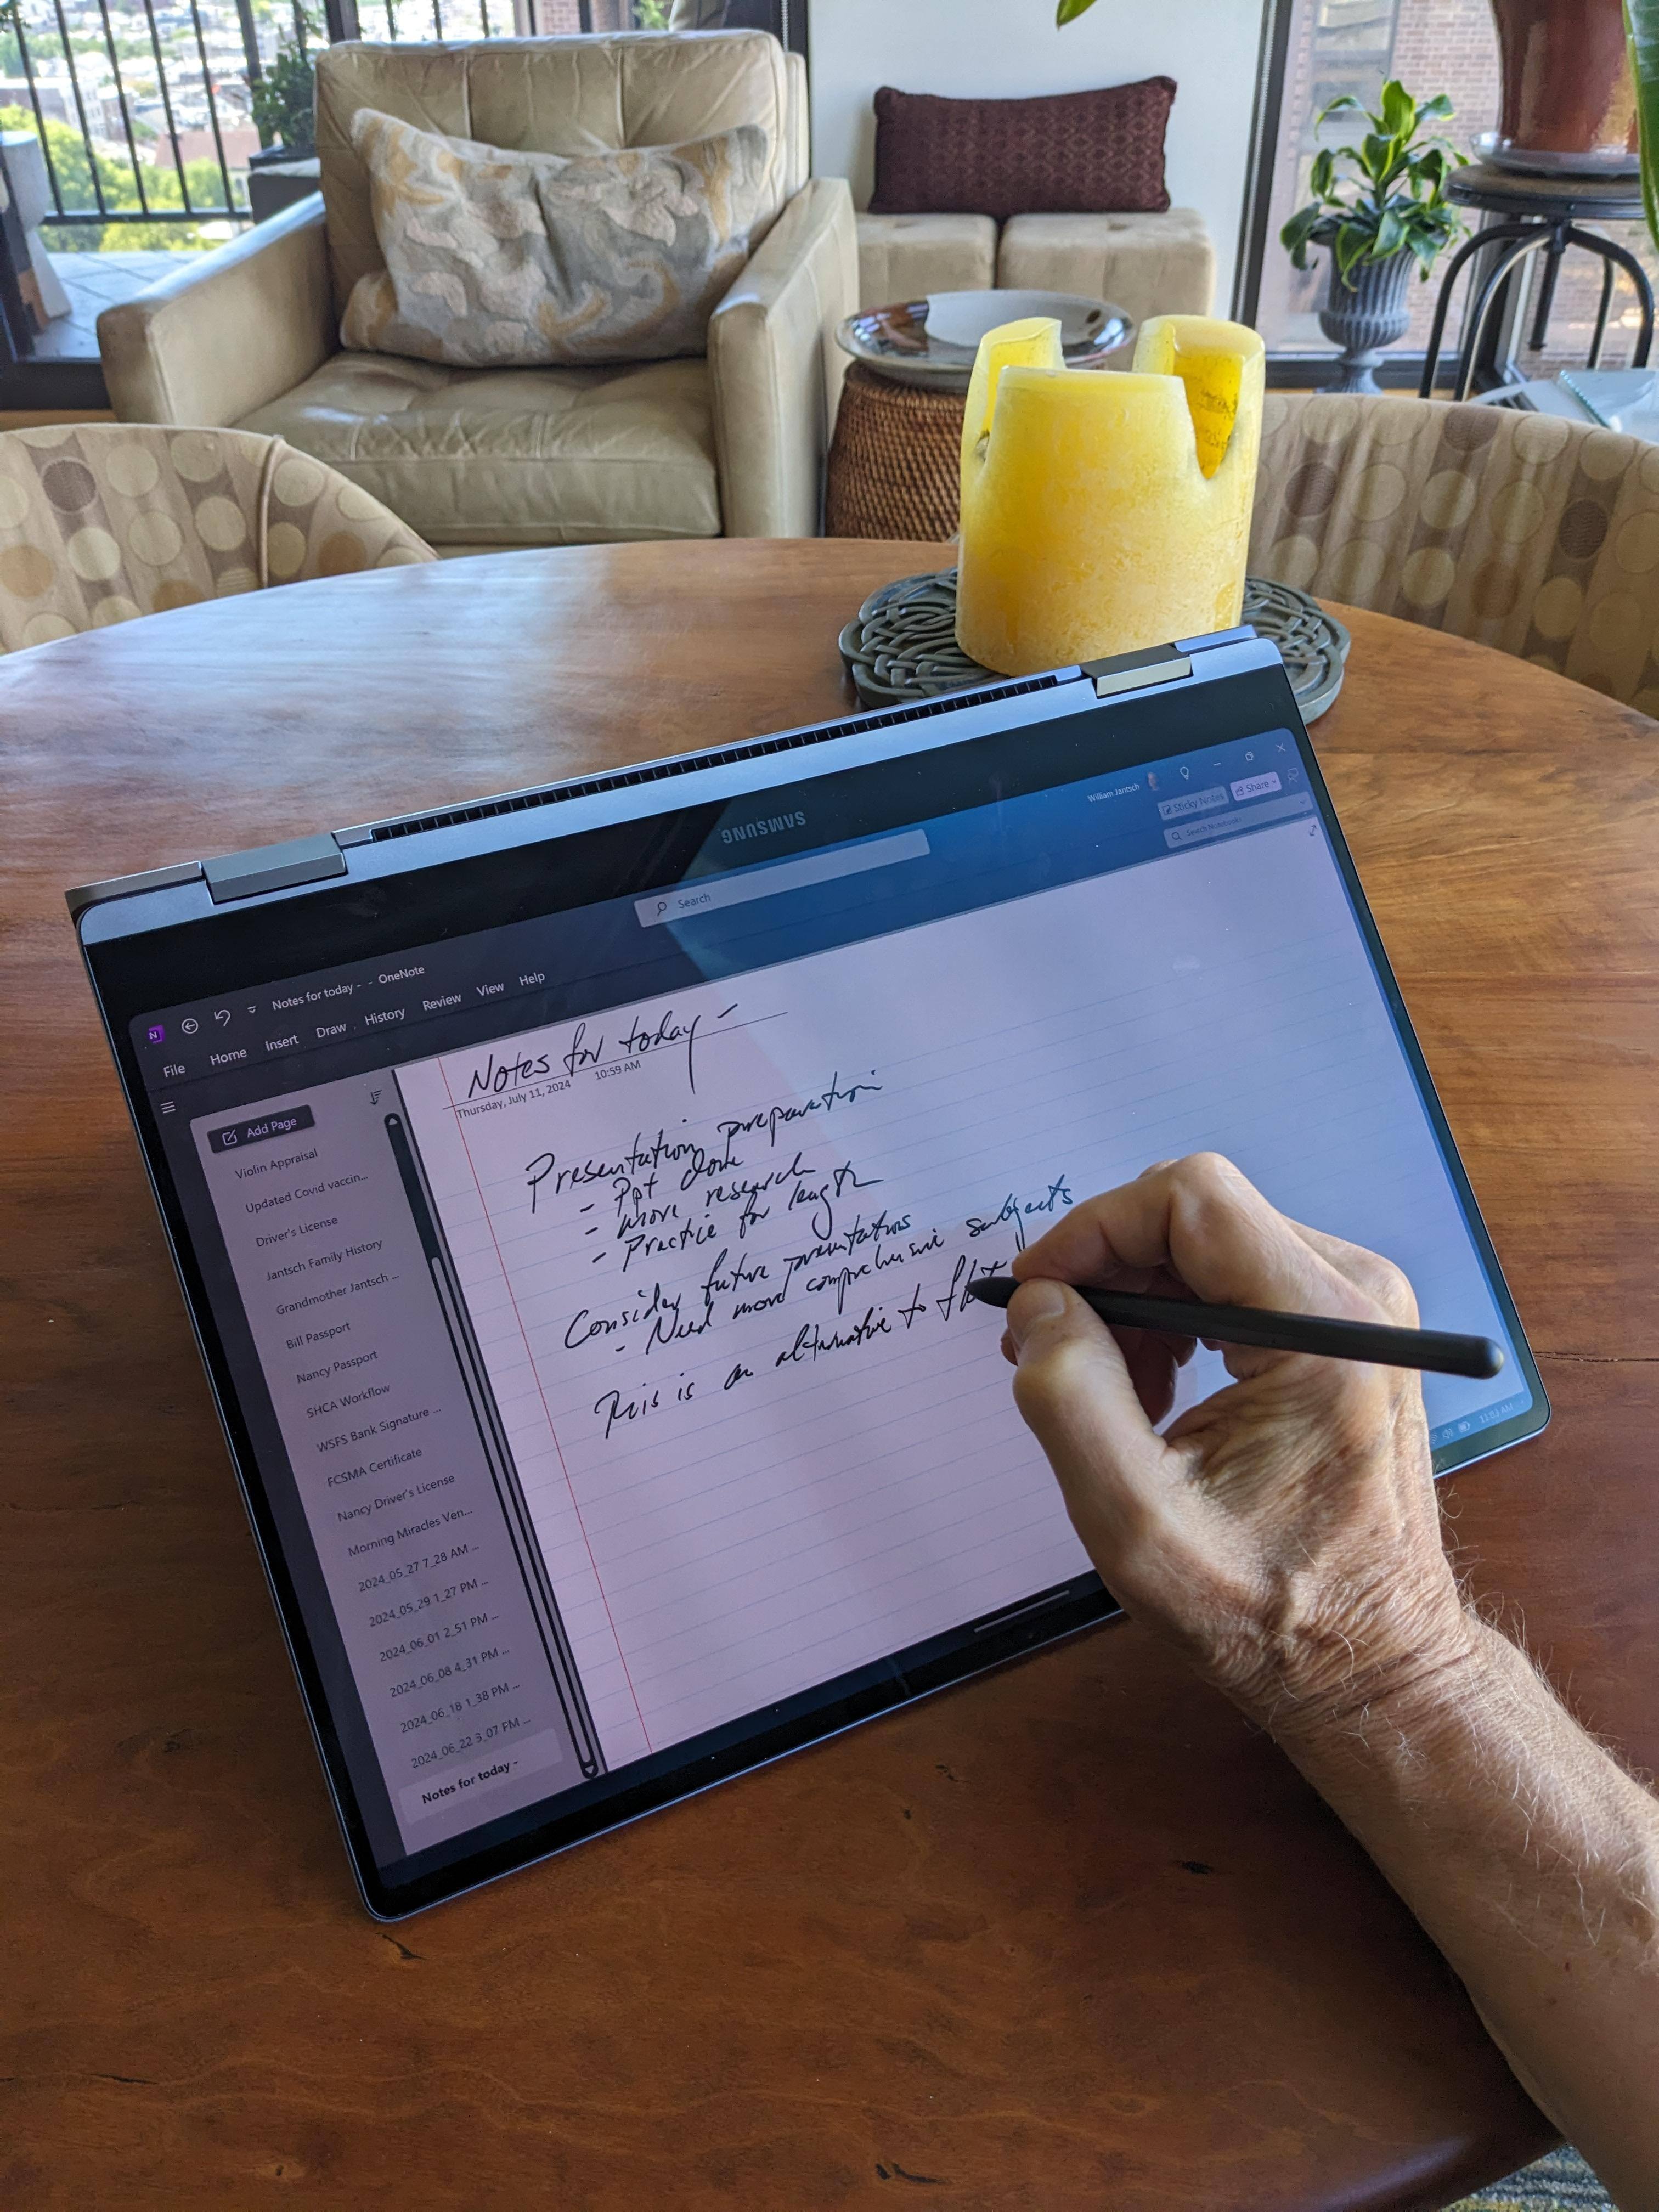 SAMSUNG
William Jantsch
Sticky Notes
Share
Search Notebooks
Search
Notes for today - - OneNote
File Home Insert Draw History Review View Help
Notes for today -
Thursday, July 11, 2024 10:59 AM
Presentation preparation
- Ppt done
- more research
- Practice for length
Consider future presentations
- Need more comprehensive subjects
This is an alternative to
Add Page
Violin Appraisal
Updated Covid vaccin...
Driver's License
Jantsch Family History
Grandmother Jantsch ...
Bill Passport
Nancy Passport
SHCA Workflow
WSFS Bank Signature ...
FCSMA Certificate
Nancy Driver's License
Morning Miracles Ven...
2024_05_27 7_28 AM ...
2024_05_29 1_27 PM ...
2024_06_01 2_51 PM ...
2024_06_08 4_31 PM ...
2024_06_18 1_38 PM ...
2024_06_22 3_07 PM ...
Notes for today -
11:03 AM